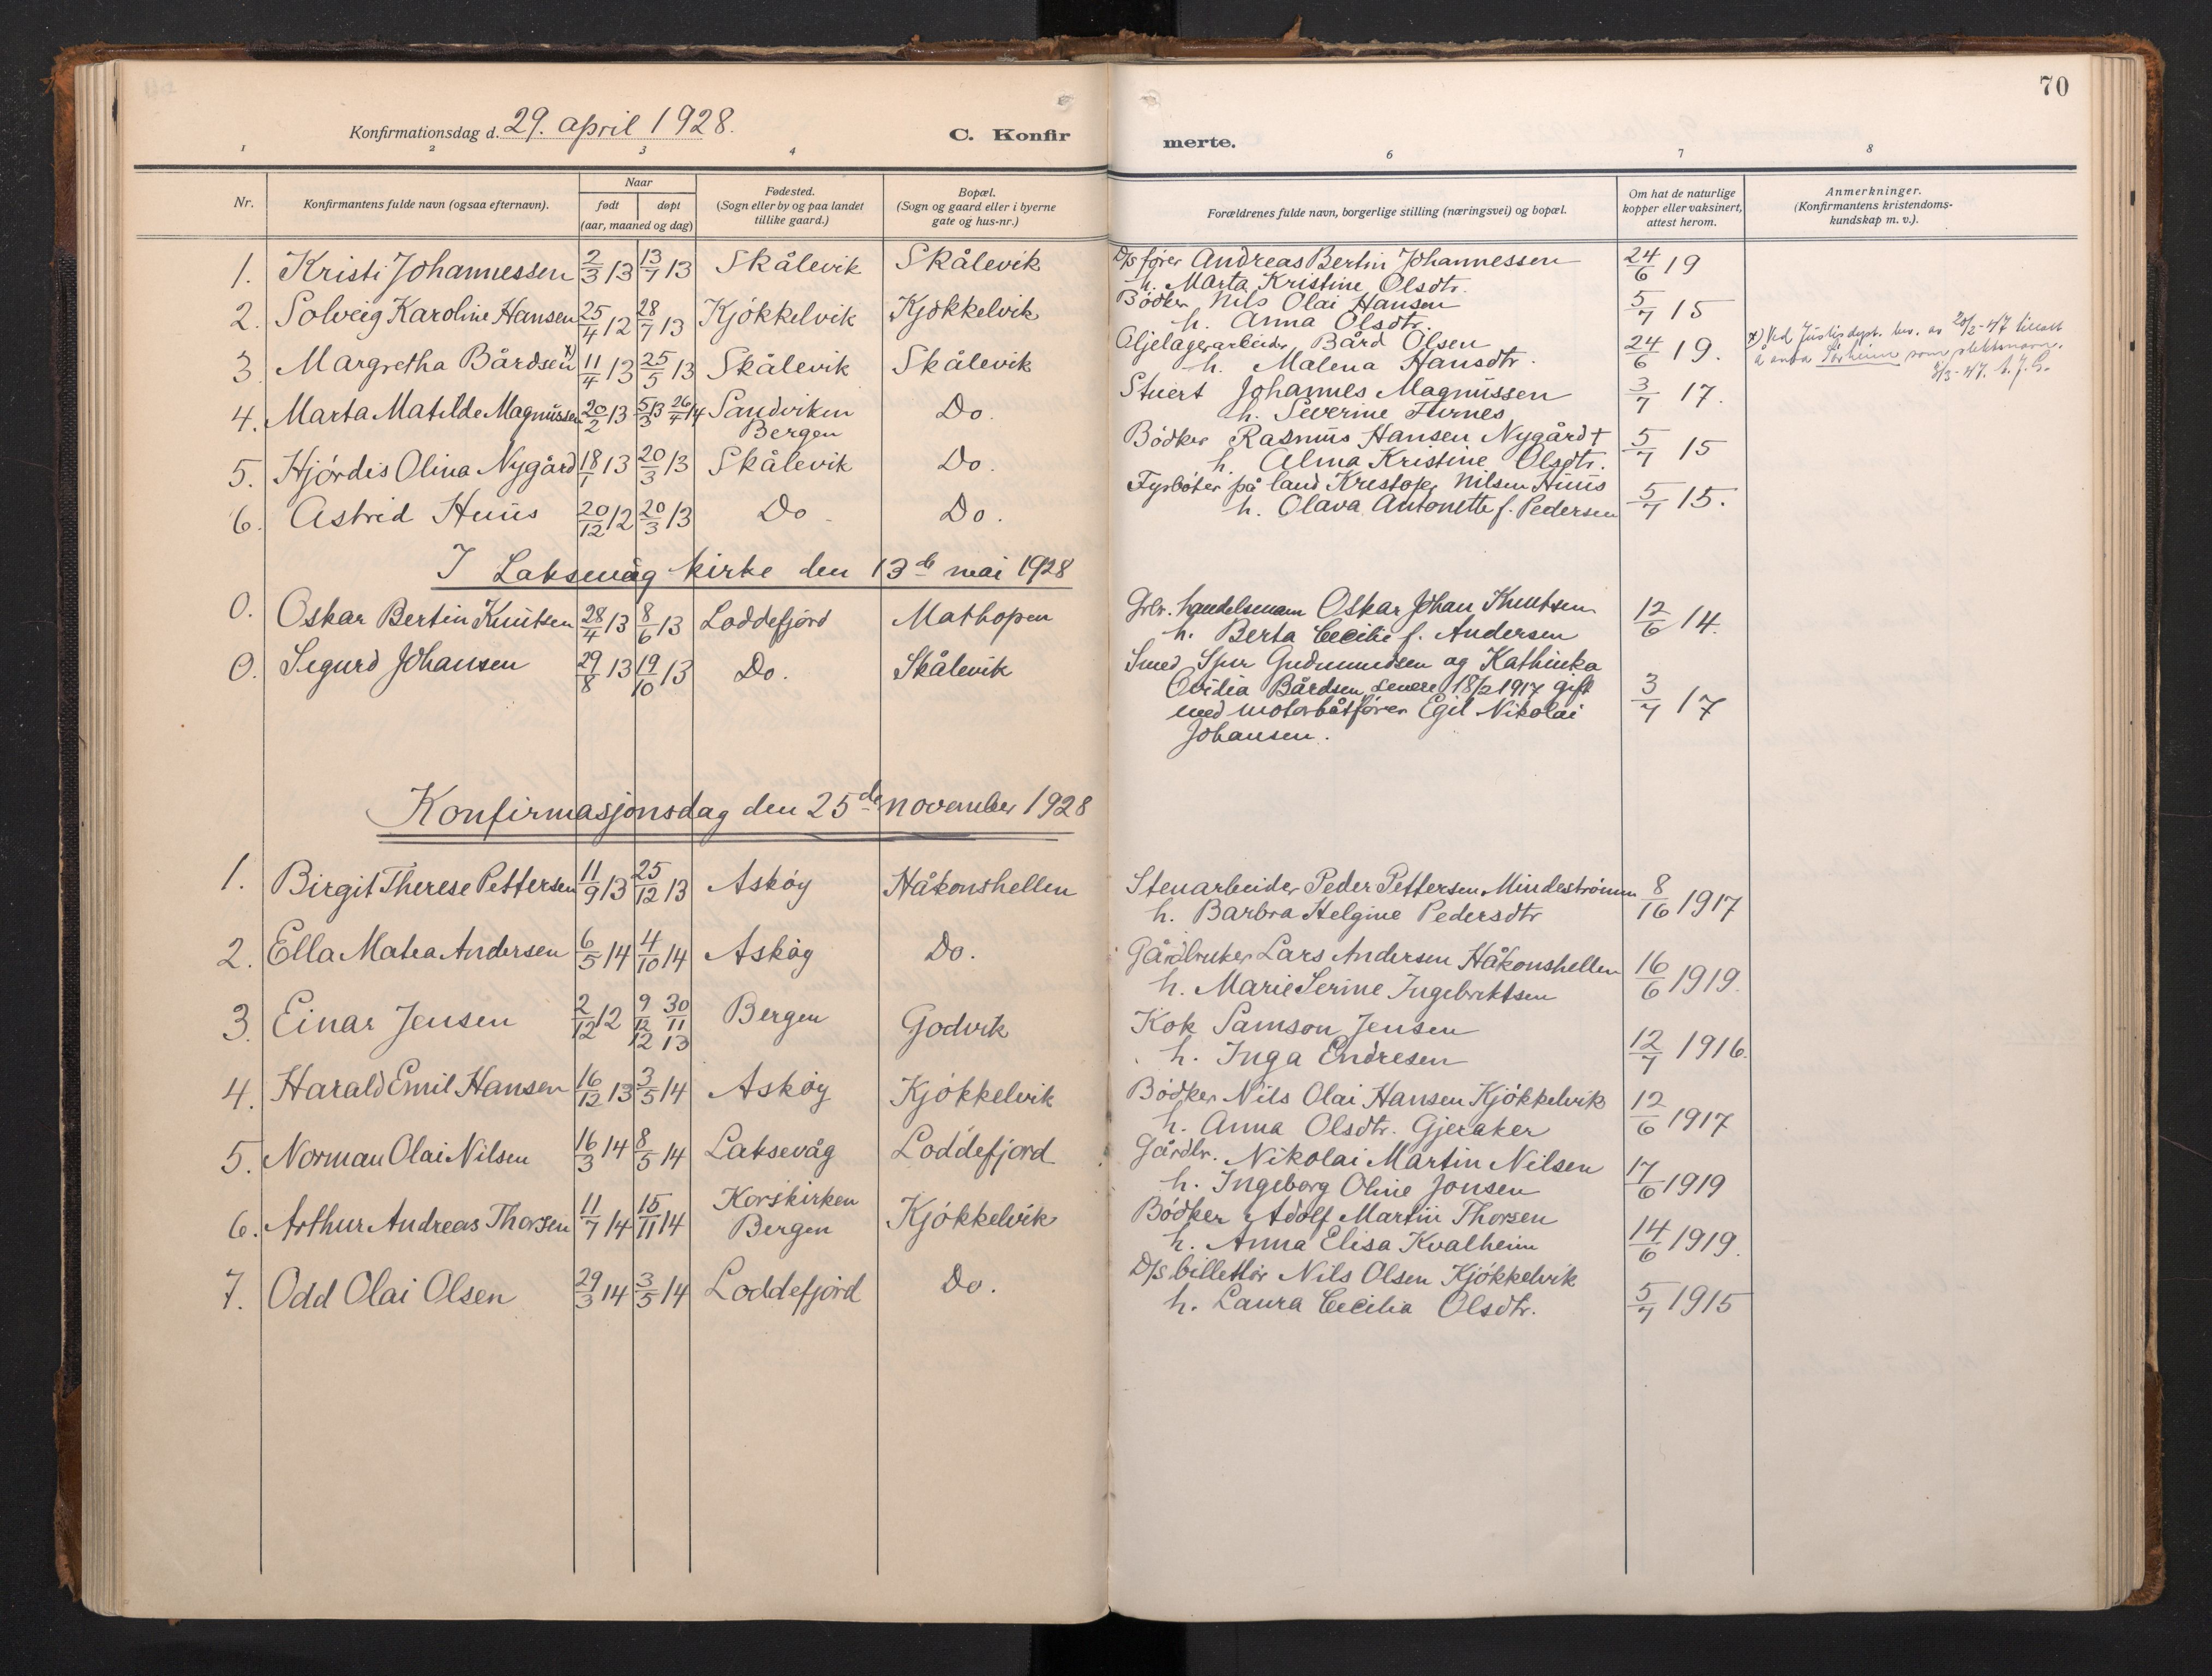 70
Konfirmationsdag d. 29. april 1928.
C. Konfir
merte.
1 2 3 4 6 7 8
Nr.
Konfirmantens fulde navn (ogsaa efternavn).
Naar
født døpt
(aar, maaned og dag)
Fødested.
(Sogn eller by og paa landet
tillike gaard.)
Bopæl.
(Sogn og gaard eller i byerne
gate og hus-nr.)
Forældrenes fulde navn, borgerlige stilling (næringsvei) og bopæl.
Om hat de naturlige
kopper eller vaksinert,
attest herom.
Anmerkninger.
(Konfirmantens kristendoms-
kundskap m. v.).
1. Kristi Johannessen 2/3 13 13/7 13 Skålevik Skålevik D/S fører Andreas Bertin Johannessen 24/6 19
h. Marta Kristine Olsdtr.
2. Solveig Karoline Hansen 25/4 12 28/7 13 Kjøkkelvik Kjøkkelvik Bødker Nils Olai Hansen 5/7 15
h. Anna Olsdtr.
3. Margretha Bårdsen x) 11/4 13 25/5 13 Skålevik Skålevik Oljelagerarbeider Bård Olsen 24/6 19. x) Ved Justisdept. bev. av 20/2-47 tillatt
h. Malena Hansdtr. å anta som slektsnavn.
8/3-47.
4. Marta Matilde Magnussen 20/2 13 5/3 13 26/4 14 Sandviken Do. Stuert Johannes Magnussen 3/7 17.
Bergen h. Severine Furnes
5. Hjördis Olina Nygård 18/1 13 20/3 13 Skålevik Do. Bødker Rasmus Hansen Nygård † 5/7 15
h. Alma Kristine Olsdtr.
6. Astrid Huus 20/12 12 20/3 13 Do Do. Fyrbøter på land Kristofer Nilsen Huus 5/7 15.
h. Olava Antonette f. Pedersen
I Laksevåg kirke den 13de mai 1928
0. Oskar Bertin Knutsen 28/4 13 8/6 13 Loddefjord Mathopen Grbr. handelsmann Oskar Johan Knutsen 12/6 14.
h. Berta Cecilie f. Andersen
0. Sigurd Johansen 29/8 13 19/10 13 Do. Skålevik Smed Gudmundsen og Kathinka
Ovidia Bårdsen senere 18/2 1917 gift 3/7 17
med motorbåtfører Egil Nikolai
Johansen.
Konfirmasjonsdag den 25de november 1928
1. Birgit Therese Pettersen 11/9 13 25/12 13 Askøy Håkonshellen Stenarbeider Peder Pettersen Mindestrømm 8/16 1917
h. Barbra Helgine Pedersdtr
2. Ella Matea Andersen 6/5 14 4/10 14 Askøy Do. Gårdbruker Lars Andersen Håkonshellen 16/6 1919.
h. Marie Serine Ingebriktsen
3. Einar Jensen 2/12 12 9/12 12 30/11 13 Bergen Godvik Kok Samson Jensen 12/7 1916.
h. Inga Endresen
4. Harald Emil Hansen 16/12 13 3/5 14 Askøy Kjøkkelvik Bødker Nils Olai Hansen Kjøkkelvik 12/6 1917
h. Anna Olsdtr. Gjeraker
5. Norman Olai Nilsen 16/3 14 8/5 14 Laksevåg Loddefjord Gårdbr. Nikolai Martin Nilsen 17/6 1919
h. Ingeborg Oline Jonsen
6. Arthur Andreas Thorsen 11/7 14 15/11 14 Korskirken Kjøkkelvik Bødker Adolf Martin Thorsen 14/6 1919.
Bergen h. Anna Elisa Kvalheim
7. Odd Olai Olsen 29/3 14 3/5 14 Loddefjord Do. D/S billettør Nils Olsen Kjøkkelvik 5/7 1915
h. Laura Cecilia Olsdtr.